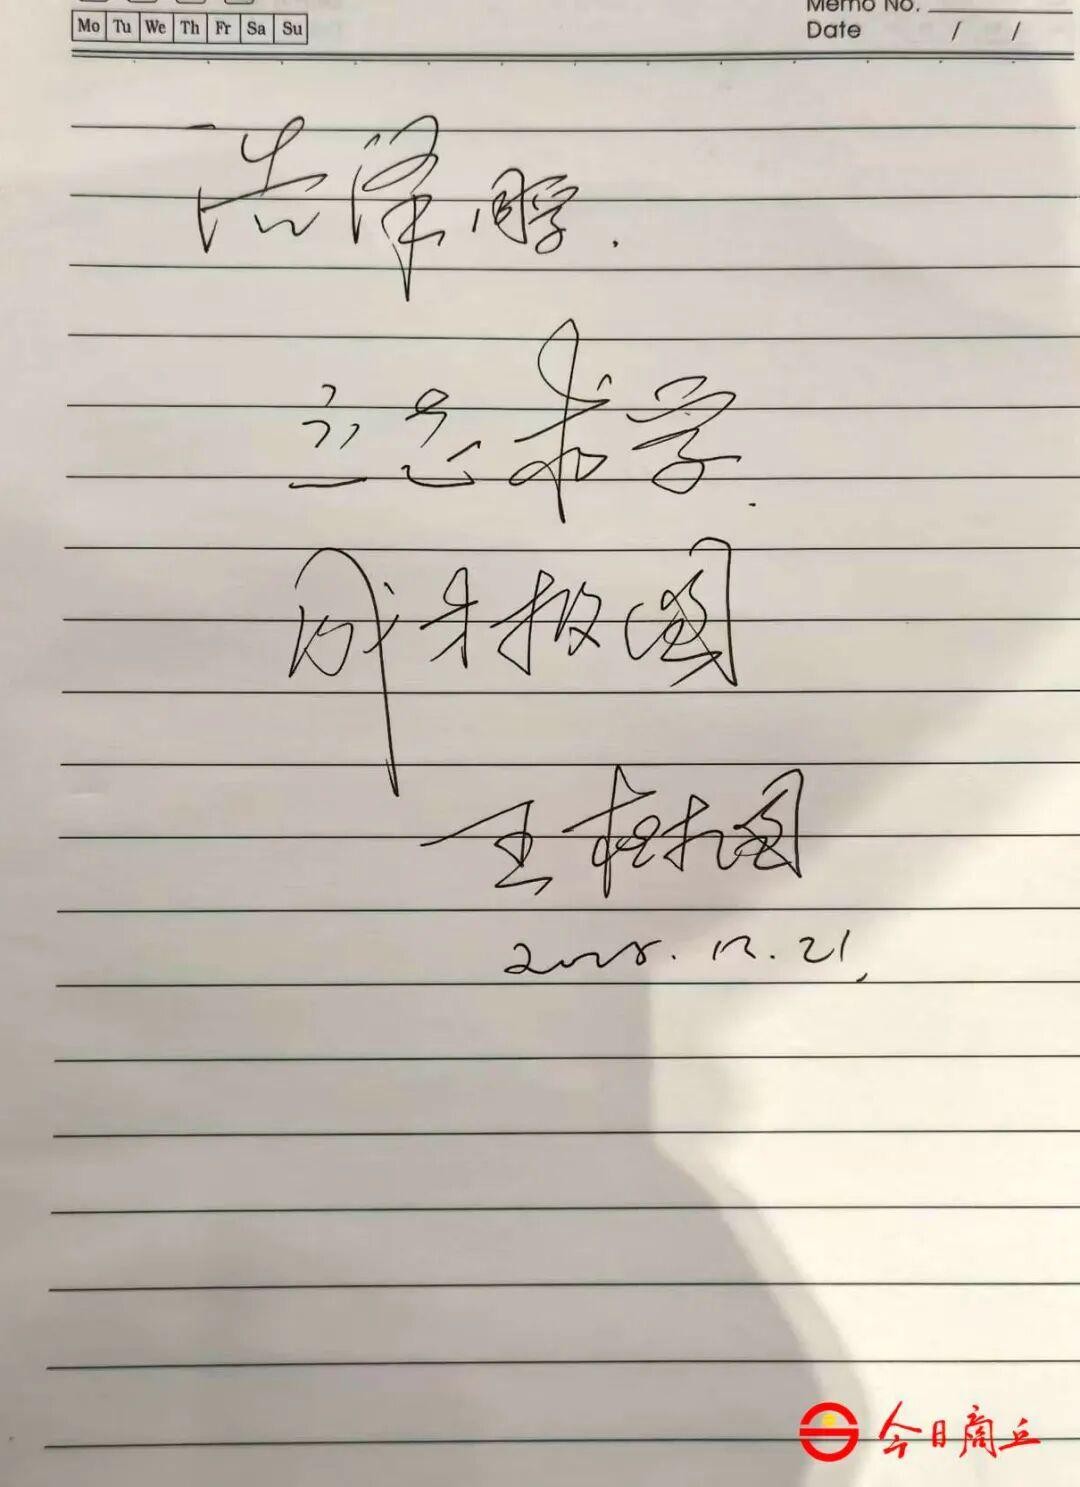 Mo Tu We Th Fr Sa Su
Memo No.
Date / /
浩泽同学.
立志求学.
成才报国
王
12.21
今日商丘